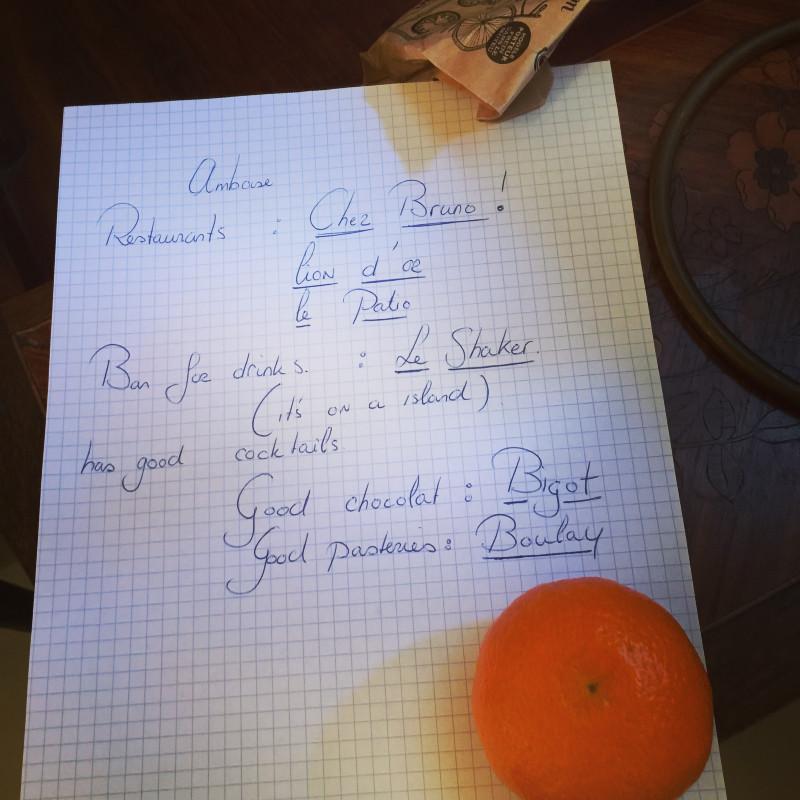 Amboise
Restaurants : Chez Bruno!
lion d'or
le Patio
Bar for drinks. : Le Shaker.
(it's on a island)
has good cocktails
Good chocolat : Bigot
Good pasteries: Boulay